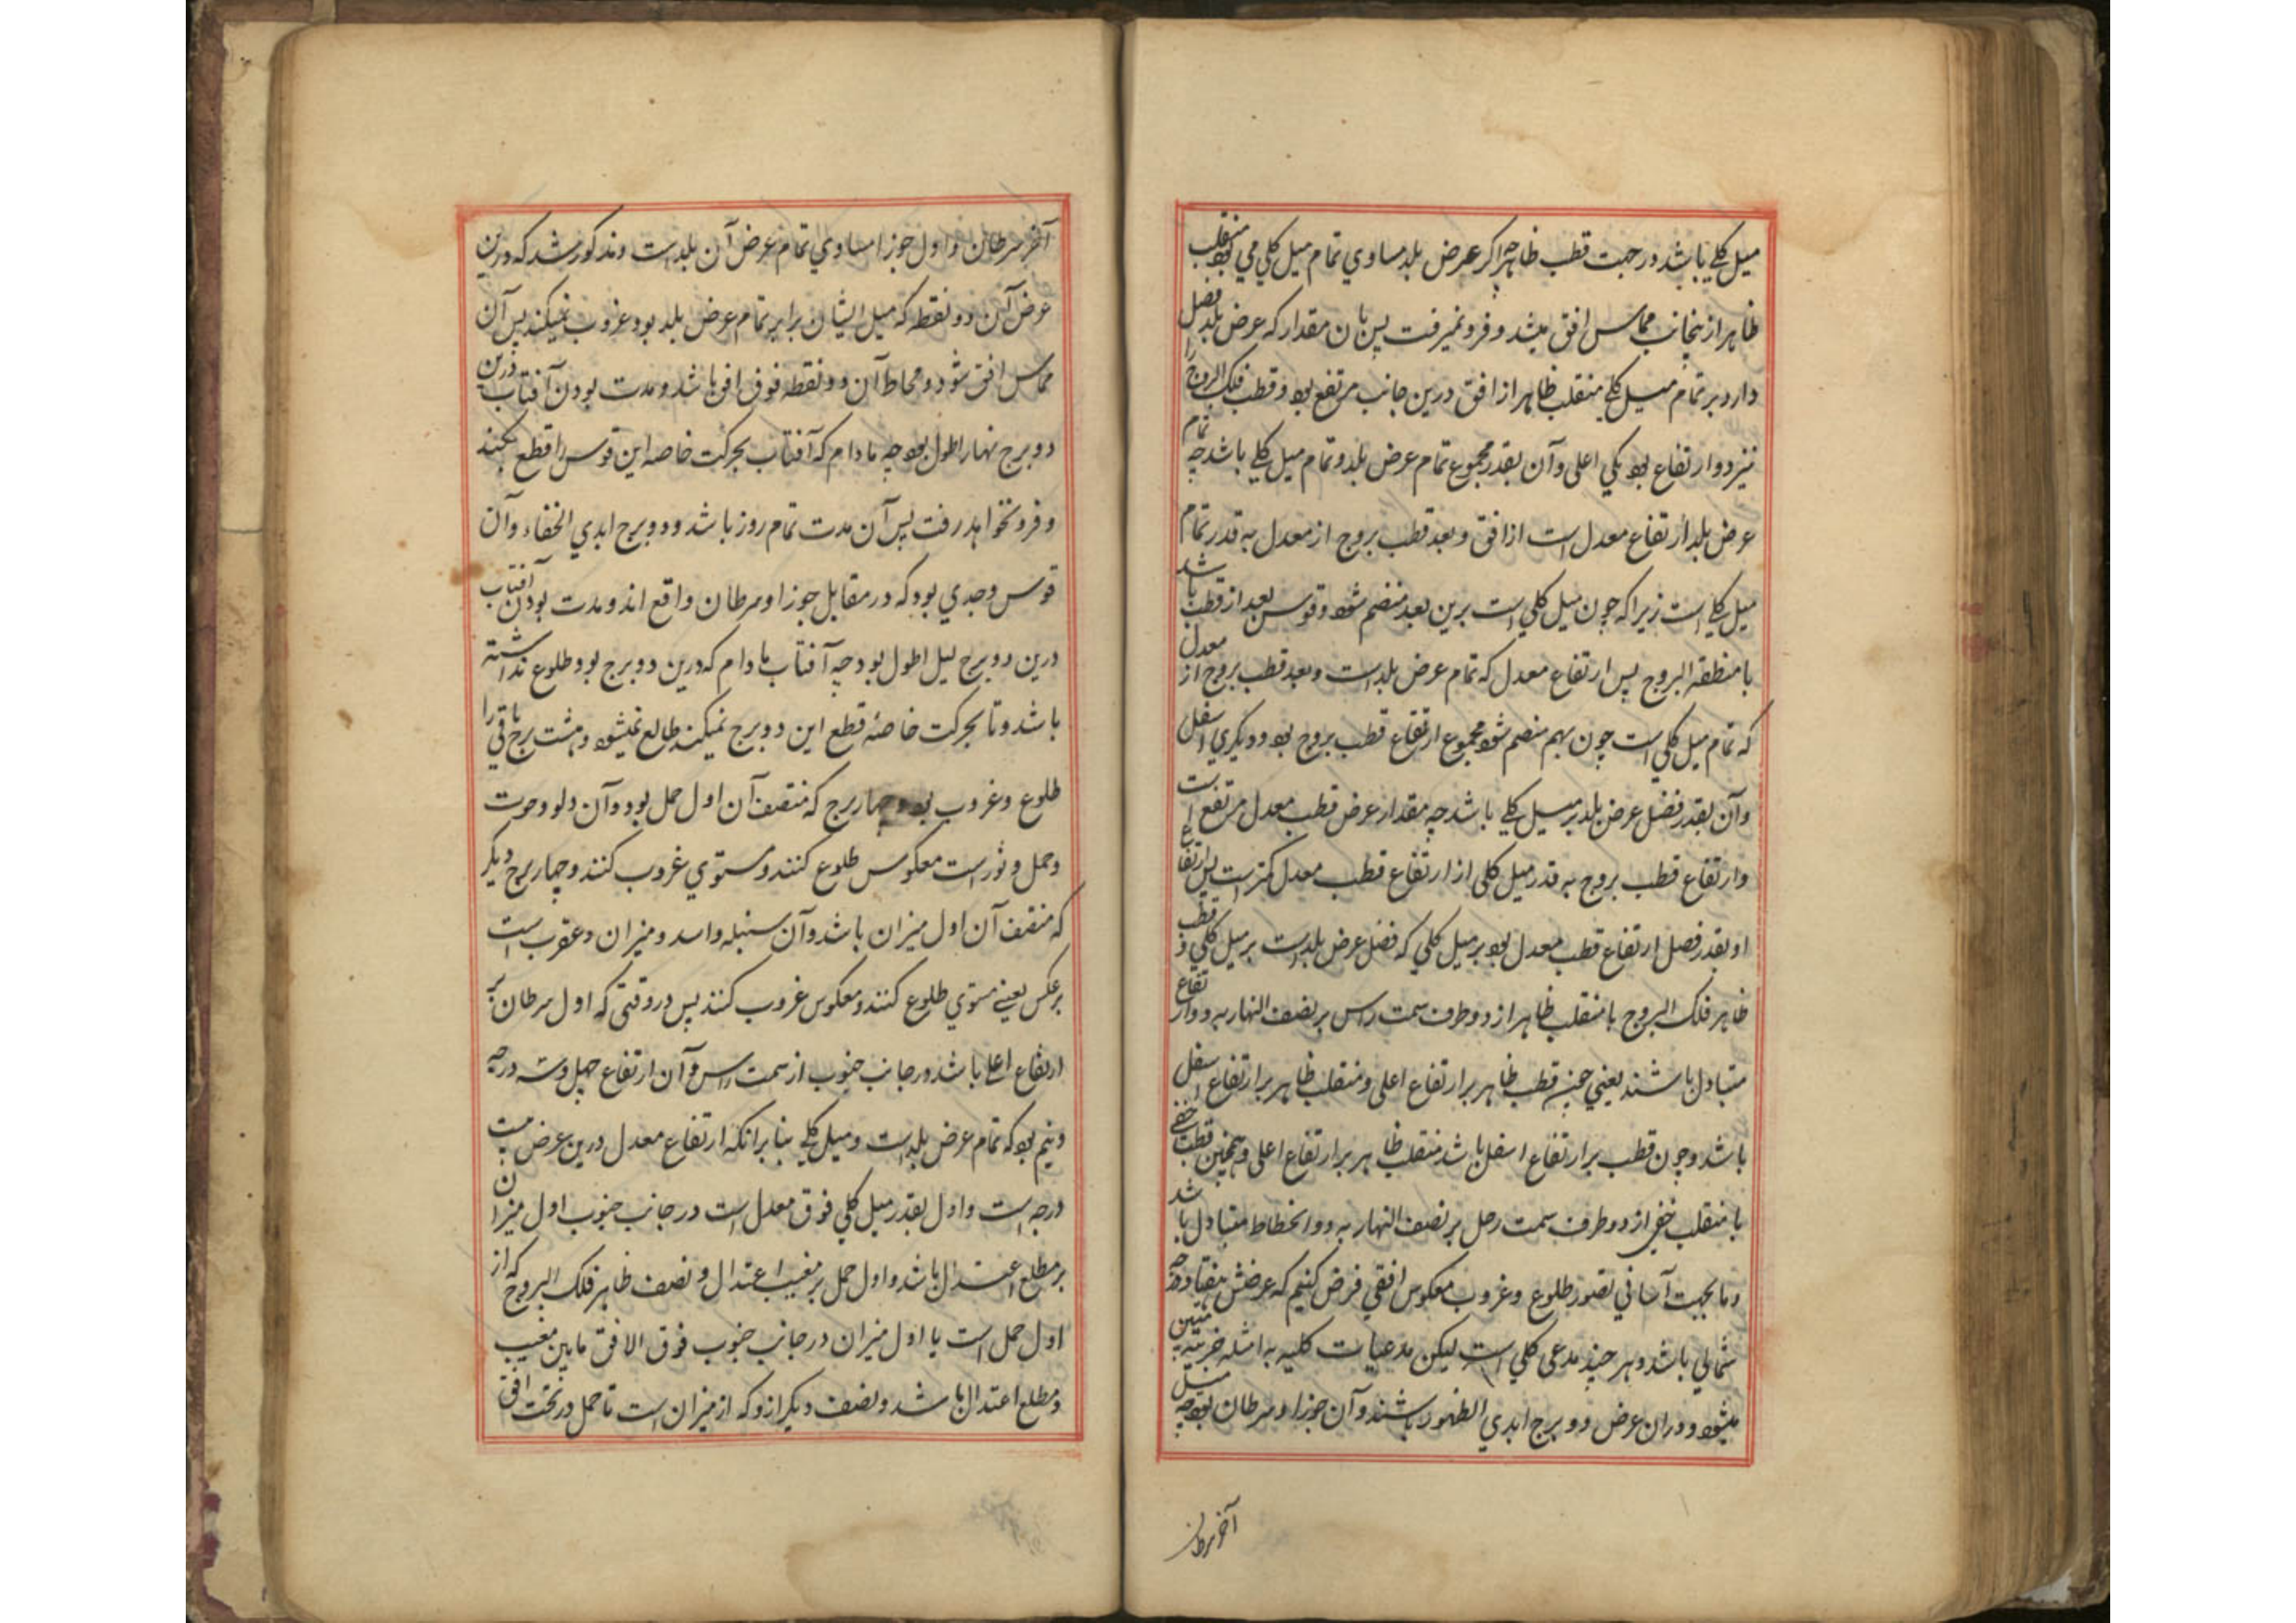 میل کلے باشد در جهت قطب ظاهر چه اگر عرض بلد مساوي تمام میل کلي مي بود منقلب
ظاهر ازینجانب مماس افق میشد و فرو نمیرفت پس بان مقدار که عرض بلد فضل
دارد بر تمام میل کلے منقلب ظاهر از افق درین جانب مرتفع بود و قطب فلک البروج را
نیز دو ارتفاع بود یکي اعلی و آن بقدر مجموع تمام عرض بلد و تمام میل کلے باشد چه تمام
عرض بلد ارتفاع معدل است از افق و بعد قطب بروج از معدل به قدر تمام
میل کلے است زیرا که چون میل کلي است برین بعد منضم شود و قوس بعد از قطب باشد
با منطقة البروج پس ارتفاع معدل که تمام عرض بلد است و بعد قطب بروج از معدل
که تمام میل کلي است چون بهم منضم شود مجموع ارتفاع قطب بروج بود و دیگري اسفل
وآن بقدر فضل عرض بلد بر میل کلے باشد چه مقدار عرض قطب معدل مرتفع است
وارتفاع قطب بروج به قدر میل کلی از ارتفاع قطب معدل کمتر است پس ارتفاع
او بقدر فضل ارتفاع قطب معدل بود بر میل کلي که فضل عرض بلد است بر میل کلي و قطب
ظاهر فلک البروج با منقلب ظاهر از دو طرف سمت راس بر نصف النهار به دو ارتفاع
متبادل باشند یعني چون قطب ظاهر بر ارتفاع اعلی و منقلب ظاهر بر ارتفاع اسفل
باشد و چون قطب بر ارتفاع اسفل باشد منقلب ظاهر بر ارتفاع اعلی و همچنین قطب خفے
با منقلب خفے از دو طرف سمت رجل بر نصف النهار به دو انحطاط متبادل باشد
وما بجهت آساني تصور طلوع و غروب معکوس افقي فرض کنیم که عرضش هفتاد درجه
شمالي باشد و هر چند مدعی کلي است لیکن مدعیات کلیه به امثله جزئیه متبین
میشود و دران عرض دو برج ابدي الظهور باشند و آن جوزا و سرطان بود چه میل
آخر سرطان
آخر سرطان و اول جوزا مساوي تمام عرض آن بلد است و مذکور شد که درین
عرض آن دو نقطه که میل ایشان برابر تمام عرض بلد بود غروب نمیکند پس آن
مماس افق شود و محاط آن دو نقطه فوق افق باشد و مدت بودن آفتاب درین
دو برج نهار اطول بود چه مادام که آفتاب بحرکت خاصه این قوس را قطع نکند
و فرو نخواهد رفت پس آن مدت تمام روز باشد و دو برج ابدي الخفاء و آن
قوس و جدي بود که در مقابل جوزا و سرطان واقع اند و مدت بودن آفتاب
درین دو برج لیل اطول بود چه آفتاب مادام که درین دو برج بود طلوع نداشته
باشد و تا بحرکت خاصهٔ قطع این دو برج نمیکند طالع نمیشود و هشت برج باقی را
طلوع و غروب بود و چهار برج که منتصف آن اول حمل بود و آن دلو و حوت
و حمل و ثور است معکوس طلوع کنند و مستوي غروب کنند و چهار برج دیگر
که منتصف آن اول میزان باشد و آن سنبله و اسد و میزان و عقرب است
بر عکس یعنے مستوي طلوع کنند و معکوس غروب کنند پس در وقتی که اول سرطان بر
ارتفاع اعلے باشد در جانب جنوب از سمت راس و آن ارتفاع چهل و سه درجه
و نیم بود که تمام عرض بلد است و میل کلے بنا بر انکه ارتفاع معدل درین عرض بیست
درجه است و اول بقدر میل کلي فوق معدل است در جانب جنوب اول میزان
بر مطلع اعتدال باشد و اول حمل بر مغیب اعتدال و نصف ظاهر فلک البروج که از
اول حمل است یا اول میزان در جانب جنوب فوق الافق مابین مغیب
و مطلع اعتدال باشد و نصف دیگر ازو که از میزان است تا حمل در تحت افق